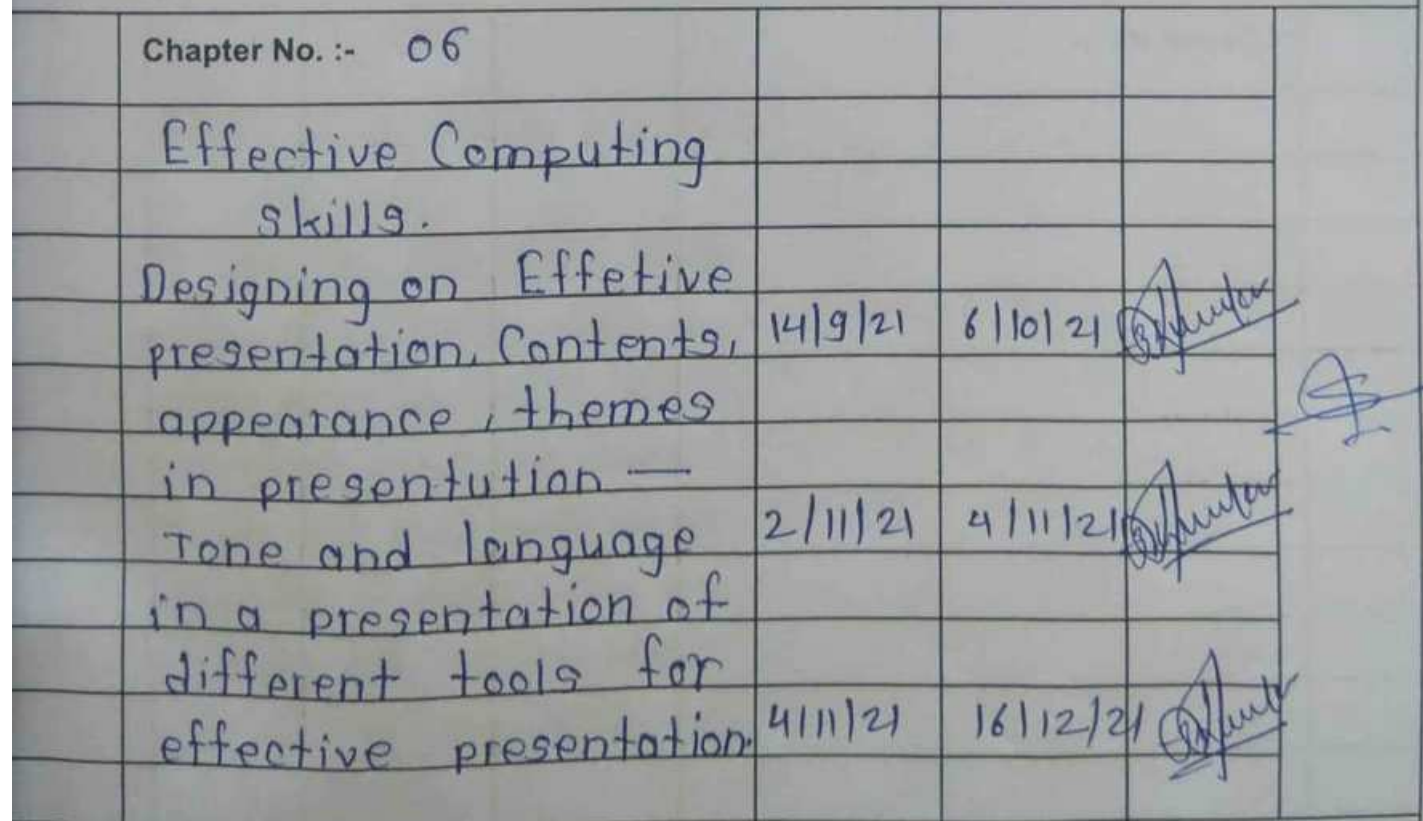 Chapter No. :- 06
Effective Computing
skills.
Designing on Effetive
presentation, Contents, 14/9/21 6/10/21
appearance, themes
in presentution —
Tone and language 2/11/21 4/11/21
in a presentation of
different tools for
effective presentation. 4/11/21 16/12/21